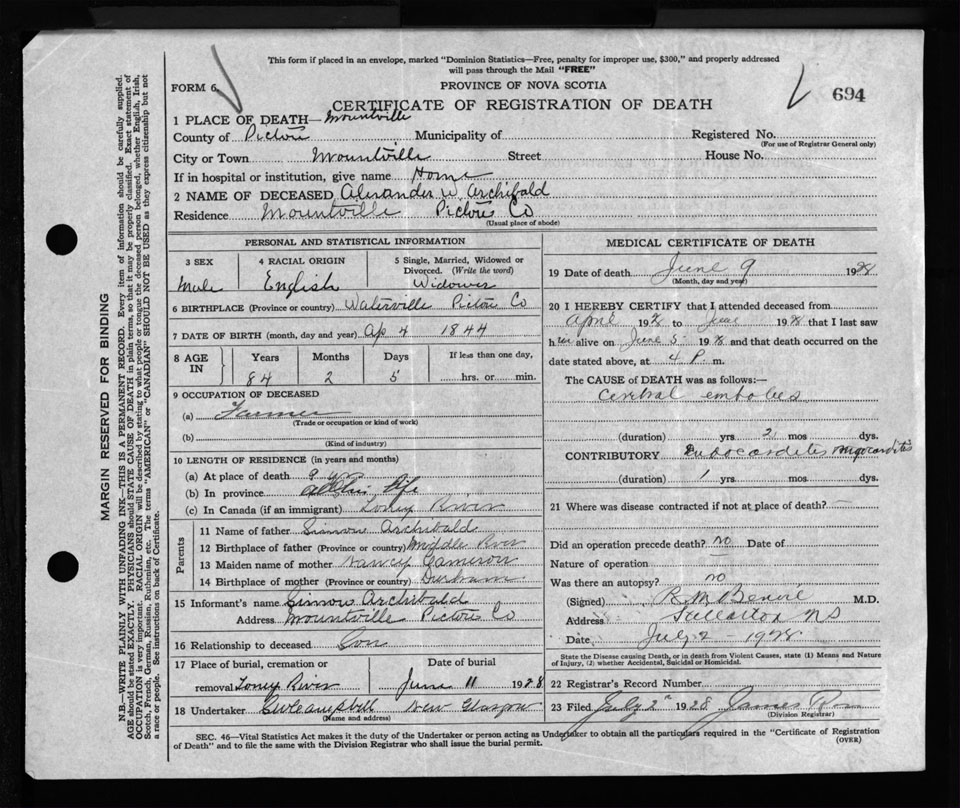 This form if placed in an envelope, marked "Dominion Statistics—Free, penalty for improper use, $300," and properly addressed
will pass through the Mail "FREE"
FORM 6.
PROVINCE OF NOVA SCOTIA
694
CERTIFICATE OF REGISTRATION OF DEATH
1 PLACE OF DEATH— Mountville
County of Pictou Municipality of Registered No.
(For use of Registrar General only)
City or Town Mountville Street House No.
If in hospital or institution, give name Home
2 NAME OF DECEASED Alexander W. Archibald
Residence Mountville Pictou Co
(Usual place of abode)
PERSONAL AND STATISTICAL INFORMATION
3 SEX 4 RACIAL ORIGIN 5 Single, Married, Widowed or
Divorced. (Write the word)
Male English Widower
6 BIRTHPLACE (Province or country) Waterville Pictou Co
7 DATE OF BIRTH (month, day and year) Ap 4 1844
8 AGE IN Years Months Days If less than one day,
84 2 5 hrs. or min.
9 OCCUPATION OF DECEASED
(a) Farmer
(Trade or occupation or kind of work)
(b)
(Kind of industry)
10 LENGTH OF RESIDENCE (in years and months)
(a) At place of death 9 yrs
(b) In province all his life
(c) In Canada (if an immigrant) Toney River
Parents
11 Name of father Simon Archibald
12 Birthplace of father (Province or country) Middle River
13 Maiden name of mother Nancy Cameron
14 Birthplace of mother (Province or country) Durham
15 Informant's name Simon Archibald
Address Mountville Pictou Co
16 Relationship to deceased Son
17 Place of burial, cremation or Date of burial
removal Toney River June 11 1928
18 Undertaker Campbell New Glasgow
(Name and address)
MEDICAL CERTIFICATE OF DEATH
19 Date of death June 9 1928
(Month, day and year)
20 I HEREBY CERTIFY that I attended deceased from
April 1928 to June 1928 that I last saw
him alive on June 5 1928 and that death occurred on the
date stated above, at 4 P. m.
The CAUSE of DEATH was as follows:—
Cerebral embolies
(duration) yrs 2 mos dys.
CONTRIBUTORY Endocardites myocardites
(duration) 1 yrs mos dys.
21 Where was disease contracted if not at place of death?
Did an operation precede death? no Date of
Nature of operation
Was there an autopsy? no
(Signed) R M Benvie M.D.
Address NS
Date July 2 - 1928
State the Disease causing Death, or in death from Violent Causes, state (1) Means and Nature
of Injury, (2) whether Accidental, Suicidal or Homicidal.
22 Registrar's Record Number
23 Filed July 2 1928 James
(Division Registrar)
SEC. 46—Vital Statistics Act makes it the duty of the Undertaker or person acting as Undertaker to obtain all the particulars required in the "Certificate of Registration
of Death" and to file the same with the Division Registrar who shall issue the burial permit. (OVER)
MARGIN RESERVED FOR BINDING
N.B.—WRITE PLAINLY WITH UNFADING INK—THIS IS A PERMANENT RECORD. Every item of information should be carefully supplied.
AGE should be stated EXACTLY. PHYSICIANS should STATE CAUSE OF DEATH in plain terms, so that it may be properly classified. Exact statement of
OCCUPATION is very important. RACIAL ORIGIN will be described by stating to what people or tongue the deceased person belonged, whether English, Irish,
Scotch, French, German, Russian, Ruthenian, etc. The terms "AMERICAN" or "CANADIAN" SHOULD NOT BE USED as they express citizenship but not
a race or people. See instructions on back of Certificate.